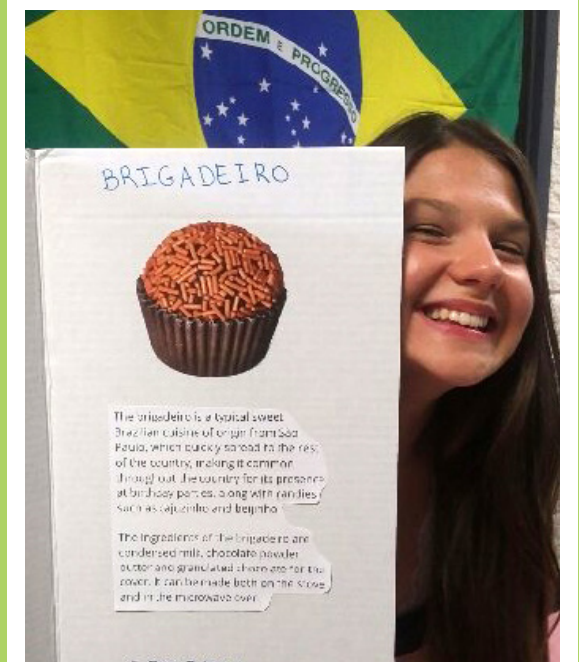 ORDEM E PROGRESSO
BRIGADEIRO
The brigadeiro is a typical sweet
Brazilian cuisine of origin from São
Paulo, which quickly spread to the rest
of the country, making it common
throughout the country for its presence
at birthday parties, along with candies
such as cajuzinho and beijinho
The ingredients of the brigadeiro are
condensed milk, chocolate powder
butter and granulated chocolate for the
cover. It can be made both on the stove
and in the microwave oven.